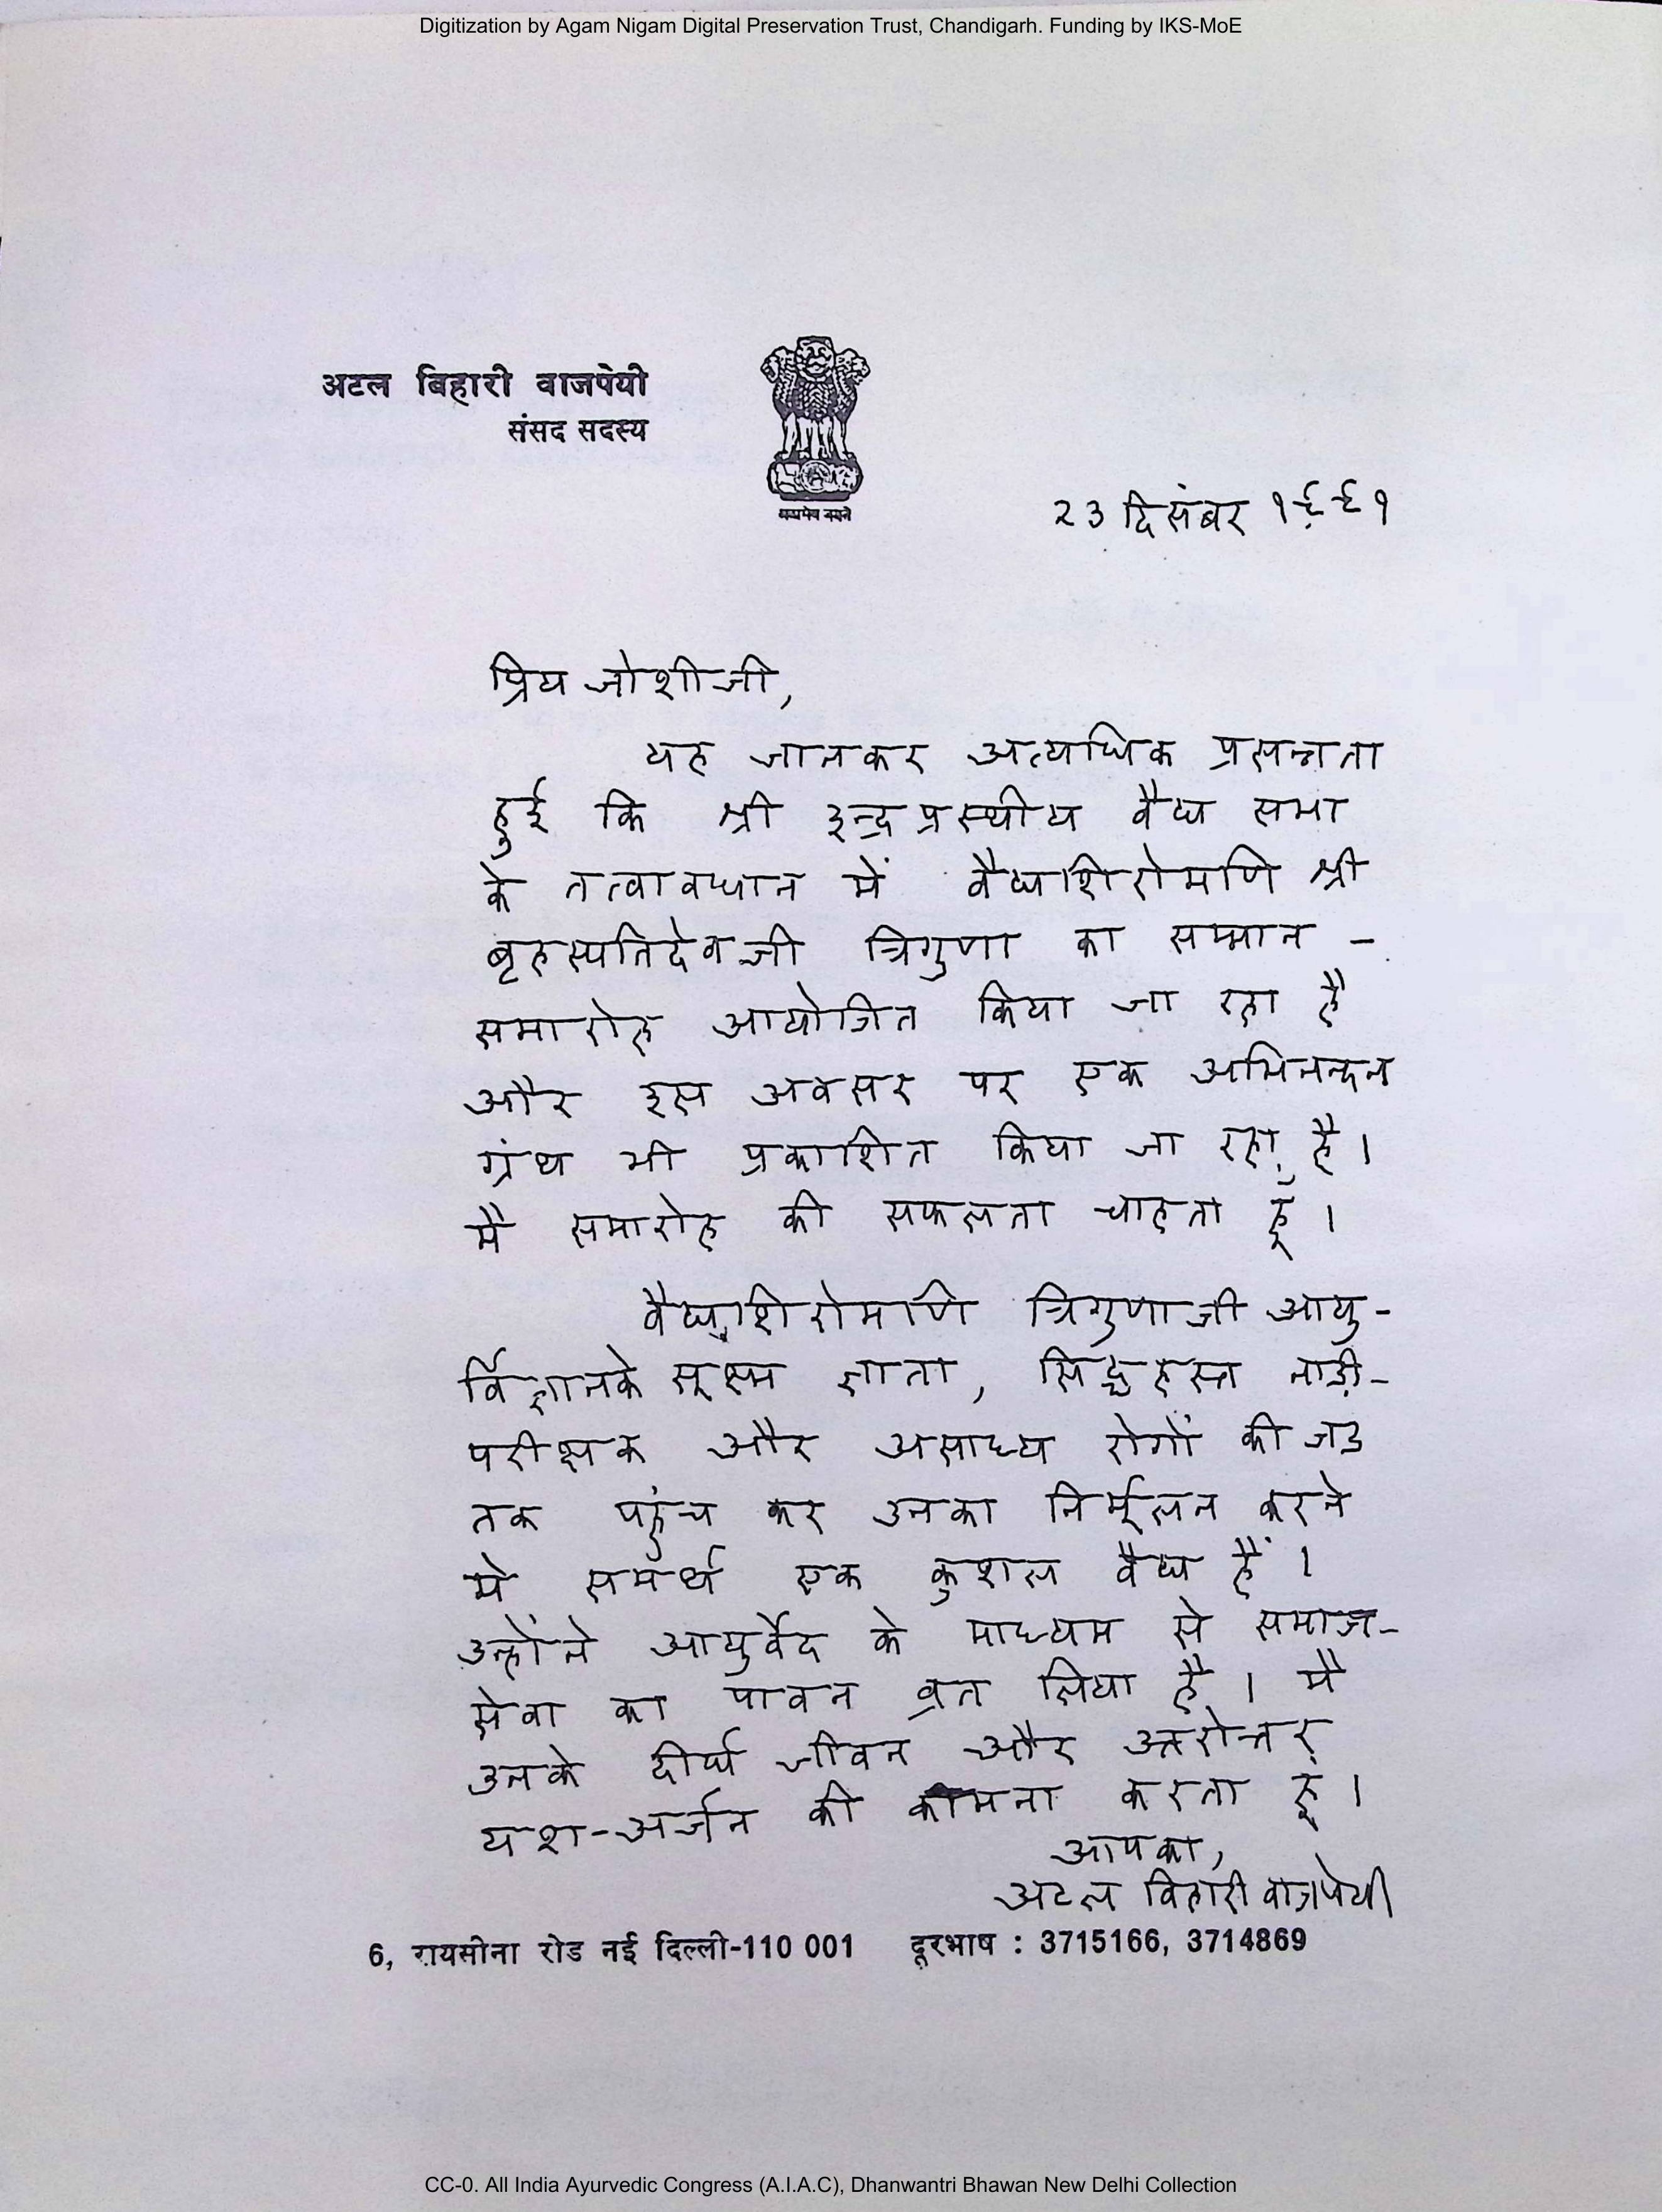 Digitization by Agam Nigam Digital Preservation Trust, Chandigarh. Funding by IKS-MoE
अटल बिहारी वाजपेयी
संसद सदस्य
सत्यमेव जयते
२३ दिसंबर १९९१
प्रिय जोशीजी,
यह जानकर अत्यधिक प्रसन्नता
हुई कि श्री इन्द्रप्रस्थीय वैद्य सभा
के तत्वावधान में वैद्यशिरोमणि श्री
बृहस्पतिदेवजी त्रिगुणा का सम्मान -
समारोह आयोजित किया जा रहा है
और इस अवसर पर एक अभिनन्दन
ग्रंथ भी प्रकाशित किया जा रहा है।
मैं समारोह की सफलता चाहता हूँ।
वैद्यशिरोमणि त्रिगुणाजी आयु-
र्विज्ञानके सूक्ष्म ज्ञाता, सिद्धहस्त नाड़ी-
परीक्षक और असाध्य रोगों की जड
तक पहुंच कर उनका निर्मूलन करने
मे समर्थ एक कुशल वैद्य हैं।
उन्होंने आयुर्वेद के माध्यम से समाज-
सेवा का पावन व्रत लिया है। मै
उनके दीर्घ जीवन और उत्तरोत्तर
यश-अर्जन की कामना करता हूं।
आपका,
अटल बिहारी वाजपेयी
6, रायसीना रोड नई दिल्ली-110 001 दूरभाष : 3715166, 3714869
CC-0. All India Ayurvedic Congress (A.I.A.C), Dhanwantri Bhawan New Delhi Collection